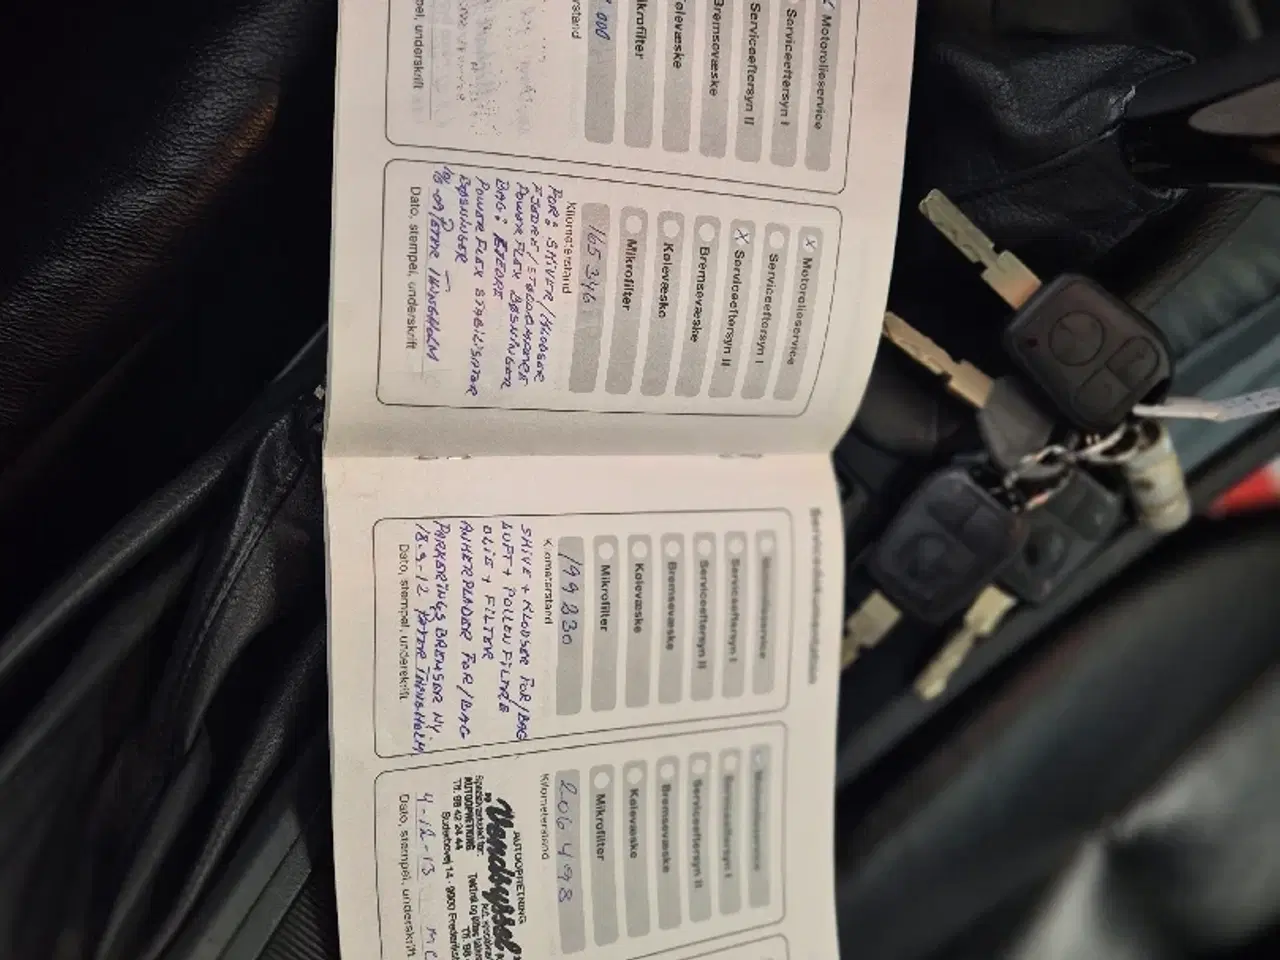 Motorolieservice
Serviceeftersyn I
Serviceeftersyn II
Bremsevæske
Kølevæske
Mikrofilter
000
underskrift
X Motorolieservice
Serviceeftersyn I
X Serviceeftersyn II
Bremsevæske
Kølevæske
Mikrofilter
165 346
Kilometerstand
FOR: SKIVER/KLODSER
FJEDRE/STØDDÆMPER
POWER FLEX BØSNINGER
BAG: FJEDRE
POWER FLEX STABILISATOR
BØSNINGER
Dato, stempel, underskrift
Servicedokumentation
Motorolieservice
Serviceeftersyn I
Serviceeftersyn II
Bremsevæske
Kølevæske
Mikrofilter
199 830
Kilometerstand
SKIVE + KLODSER FOR/BAG
LUFT + POLLENFILTRE
OLIE + FILTER
ANKERPLADER FOR/BAG
PARKERINGS BREMSER NY
18-3-12 PETER
Dato, stempel, underskrift
Motorolieservice
Serviceeftersyn I
Serviceeftersyn II
Bremsevæske
Kølevæske
Mikrofilter
206 498
Kilometerstand
AUTOOPRETNING
Vendsyssel
Specialværkstedet for:
AUTOOPRETNING
Tlf. 98 42 24 44
Suderbovej 14 - 9900 Frederiksh
4-12-13
Dato, stempel, underskrift